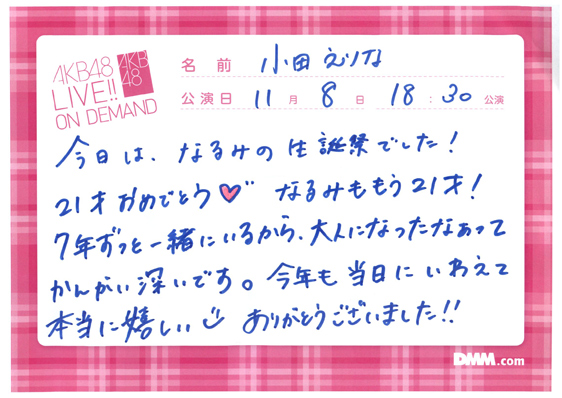 AKB48
LIVE!!
ON DEMAND
AKB
48
名前 小田えりな
公演日 11月8日 18:30公演
今日は、なるみの生誕祭でした!
21才おめでとう♡ なるみももう21才!
7年ずっと一緒にいるから、大人になったなぁって
かんがい深いです。今年も当日にいわえて
本当に嬉しい ありがとうございました!!
DMM.com